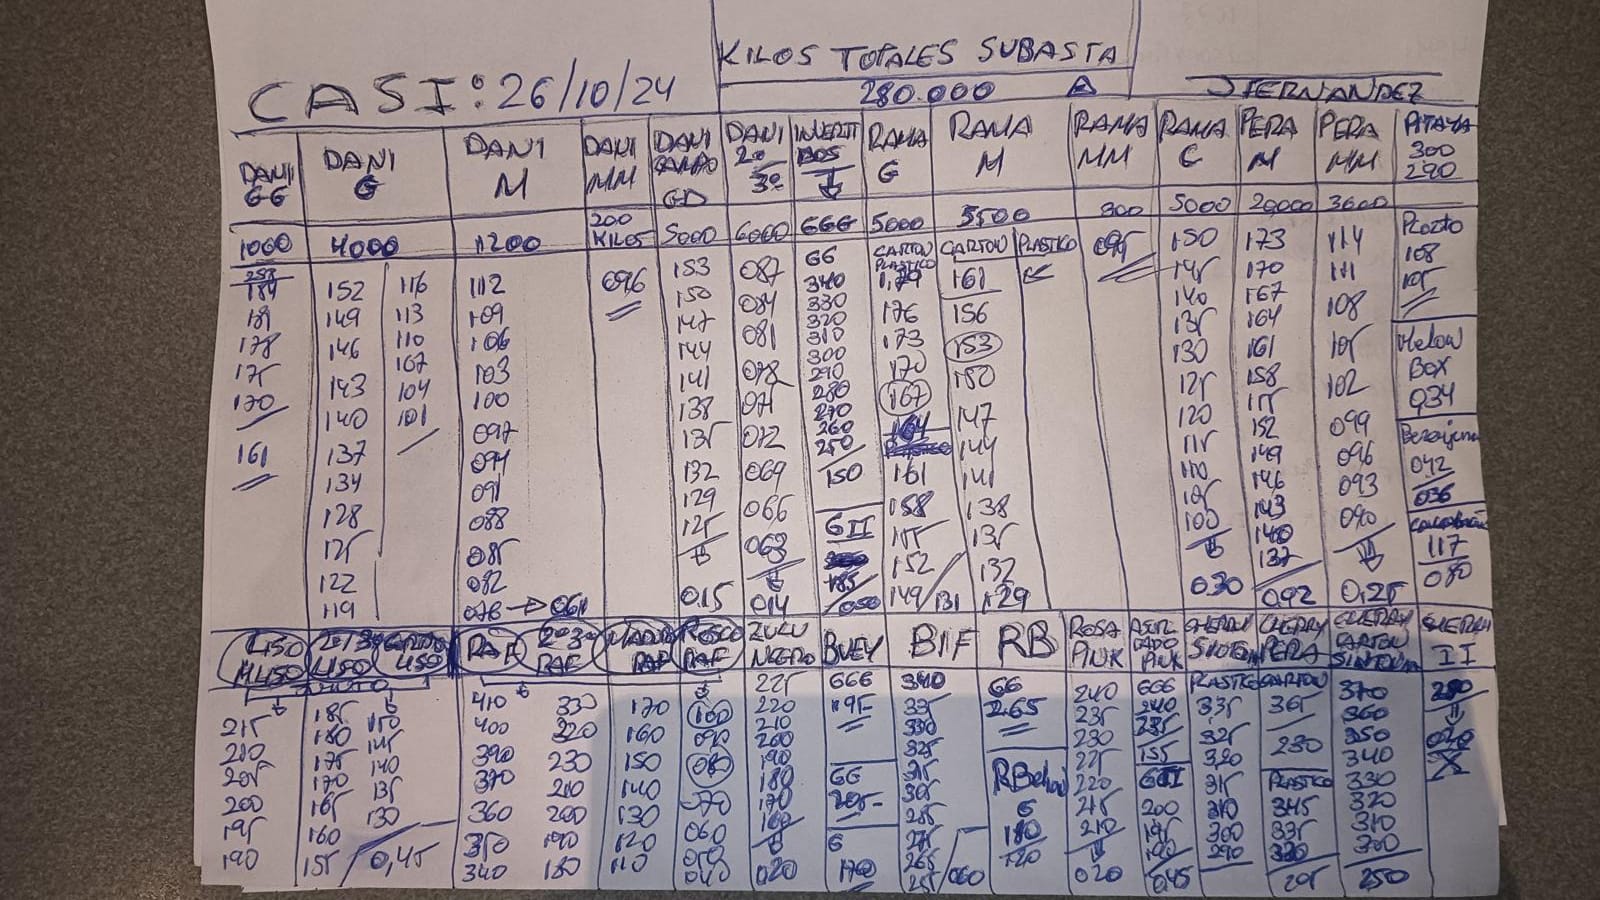 KILOS TOTALES SUBASTA
CASI: 26/10/24
280.000
JFERNANDEZ
DANI GG
DANI G
DANI M
DANI MM
DANI CAMPO GD
DANI 2º 3º
INVERTIDOS
RAMA G
RAMA M
RAMA MM
RAMA C
PERA M
PERA MM
PITAYA 300 290
1000 4000 1200 200 KILOS 5000 6000 GGG 5000 5500 300 5000 20,000 3600
184
181
178
175
170
161
152 116
149 113
146 110
143 107
140 104
137 101
134
128
125
122
119
112
109
106
103
100
097
094
091
088
085
082
078 → 061
096
153
150
147
144
141
138
135
132
129
125
0.15
087
084
081
078
075
072
069
066
063
0,14
GG
340
330
320
310
300
290
280
270
260
250
150
GII
185
050
CARTON
PLASTICO
1,79
176
173
170
167
164
161
158
155
152
149/131
CARTON PLASTICO
161
156
153
150
147
144
141
138
135
132
129
095
150
145
140
135
130
125
120
115
110
105
100
0.30
173
170
167
164
161
158
155
152
149
146
143
140
137
0,92
114
111
108
105
102
099
096
093
090
0,25
108
105
Melon
Box
034
Berenjena
042
036
117
080
LISO
M LISO
2º 3º
LISO
GORDO
LISO
RAF
2º 3º
RAF
RAF
ROSCO
RAF
ZULU
NEGRO
BUEY
BIF
RB
ROSA
PINK
PINK
CHERRY
CHERRY
PERA
CHERRY
CARTON
CHERRY
II
215
210
205
200
195
190
185
180
175
170
165
160
155
150
145
140
135
130
0,45
410
400
390
370
360
350
340
330
320
230
210
200
190
180
170
160
150
140
130
120
110
100
090
080
070
060
050
040
225
220
210
200
190
180
170
160
020
GGG
195
GG
205
G
170
340
335
330
325
315
305
285
275
265
255/060
GG
265
G
180
120
240
235
230
225
220
215
210
020
GGG
240
235
155
GII
200
195
190
0,45
PLASTICO
335
325
320
315
310
300
290
CARTON
365
280
PLASTICO
345
335
320
205
370
360
350
340
330
320
310
300
250
280
020